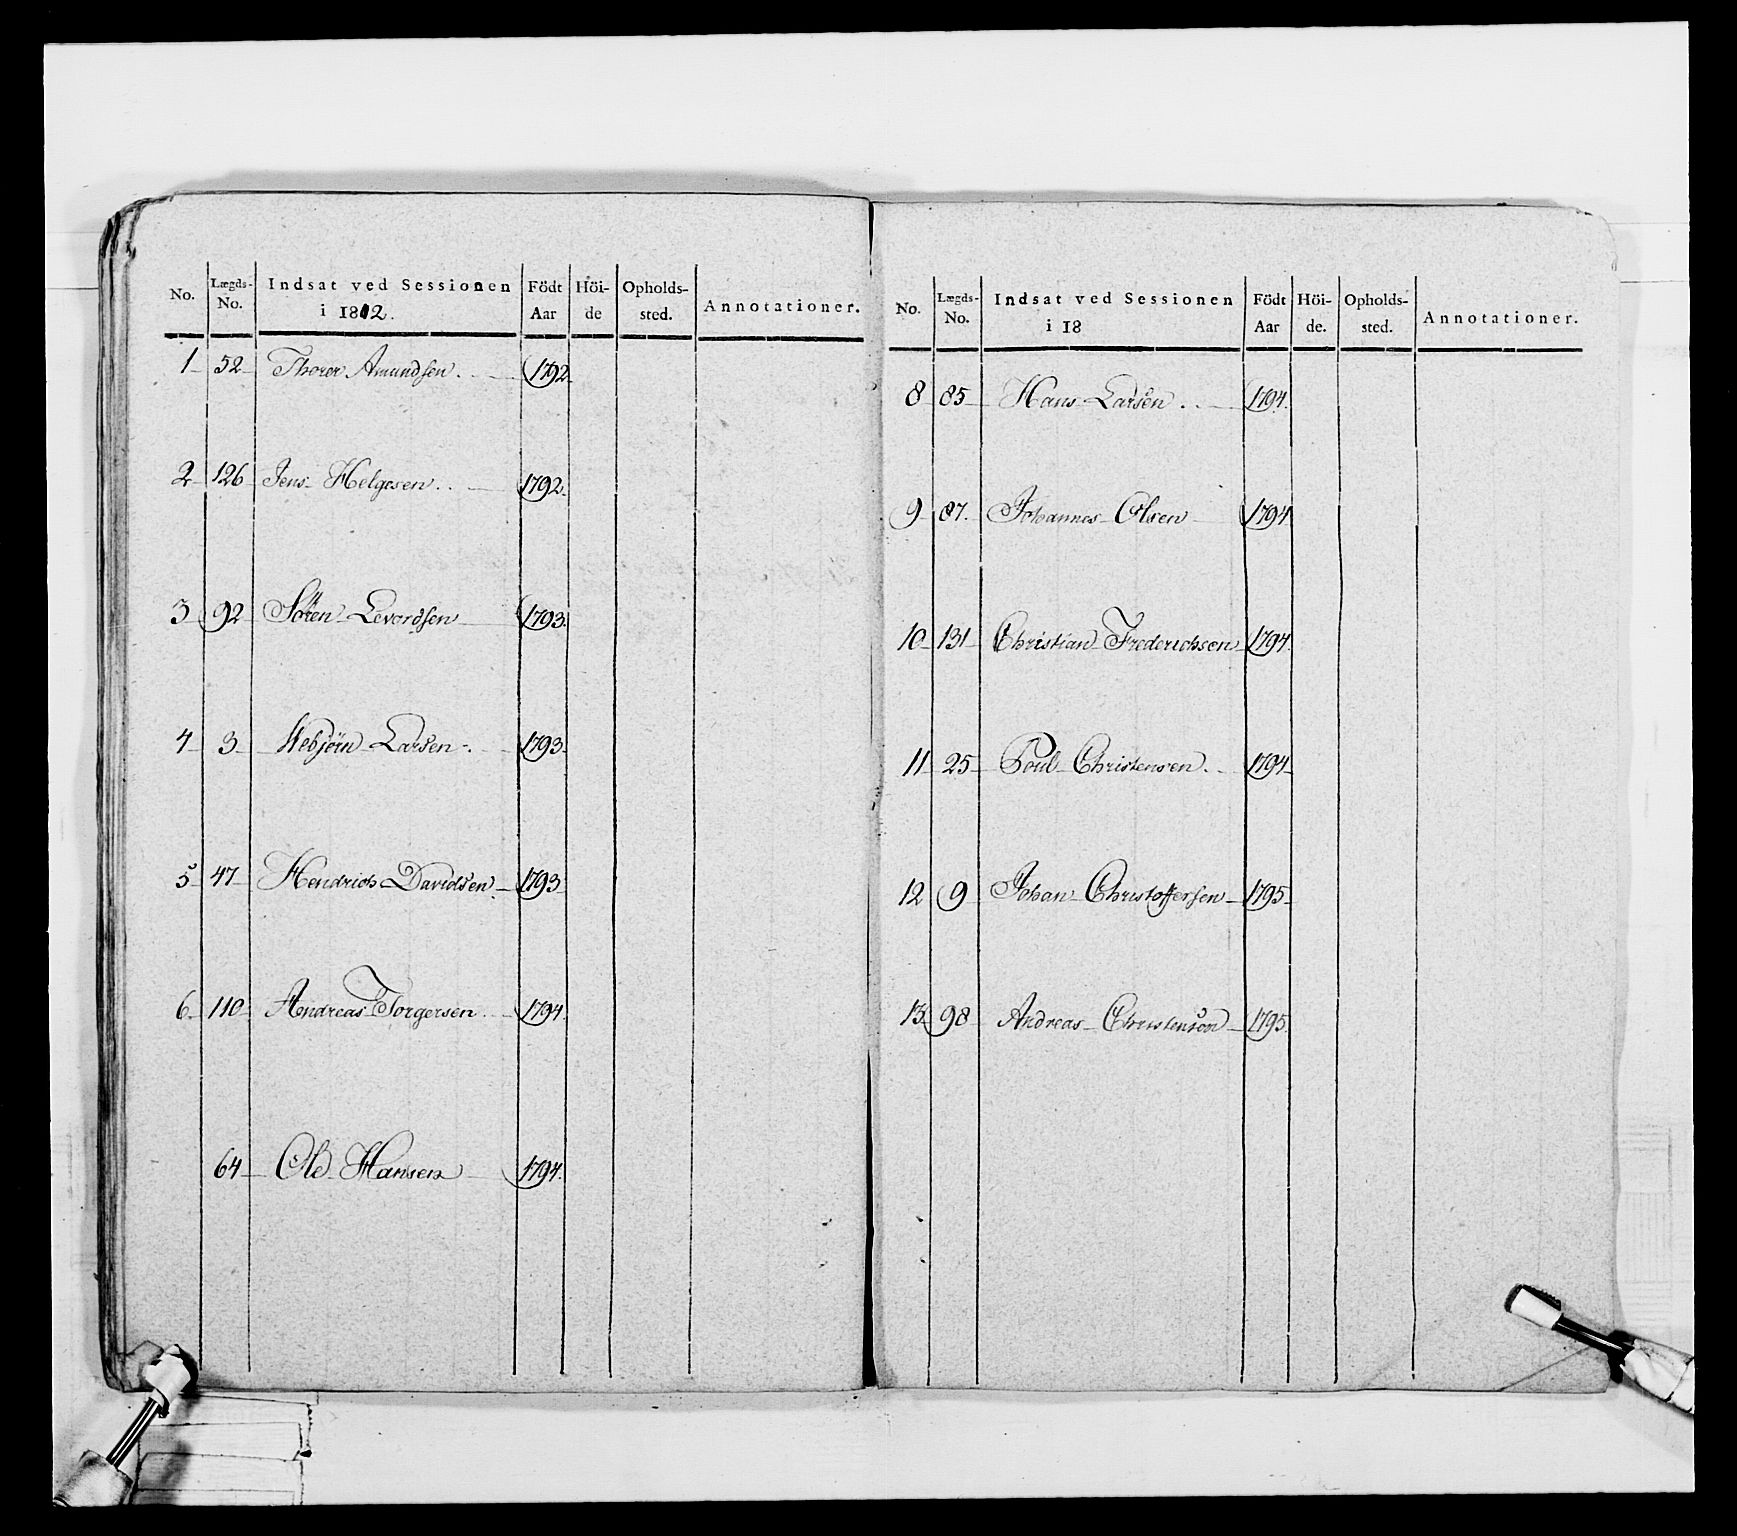 No. Lægds-No. Indsat ved Sessionen i 1812. Födt Aar Höi-de Opholds-sted. Annotationer.
1 52 Thorer Amundsen. 1792
2 126 Jens Helgesen. 1792
3 92 Sören Levordsen 1793
4 3 Webjörn Larsen. 1793
5 47 Hendrich Davidsen 1793
6 110 Andreas Torgersen 1794
64 Ole Hansen 1794
No. Lægds-No. Indsat ved Sessionen i 18 Födt Aar Höi-de. Opholds-sted. Annotationer.
8 85 Hans Larsen. 1794
9 87. Johannes Olsen 1794
10 131 Christian Frederichsen 1794
11 25 Poul Christensen. 1794
12 9 Johan Christoffersen 1795
13 98 Andreas Christensen 1795